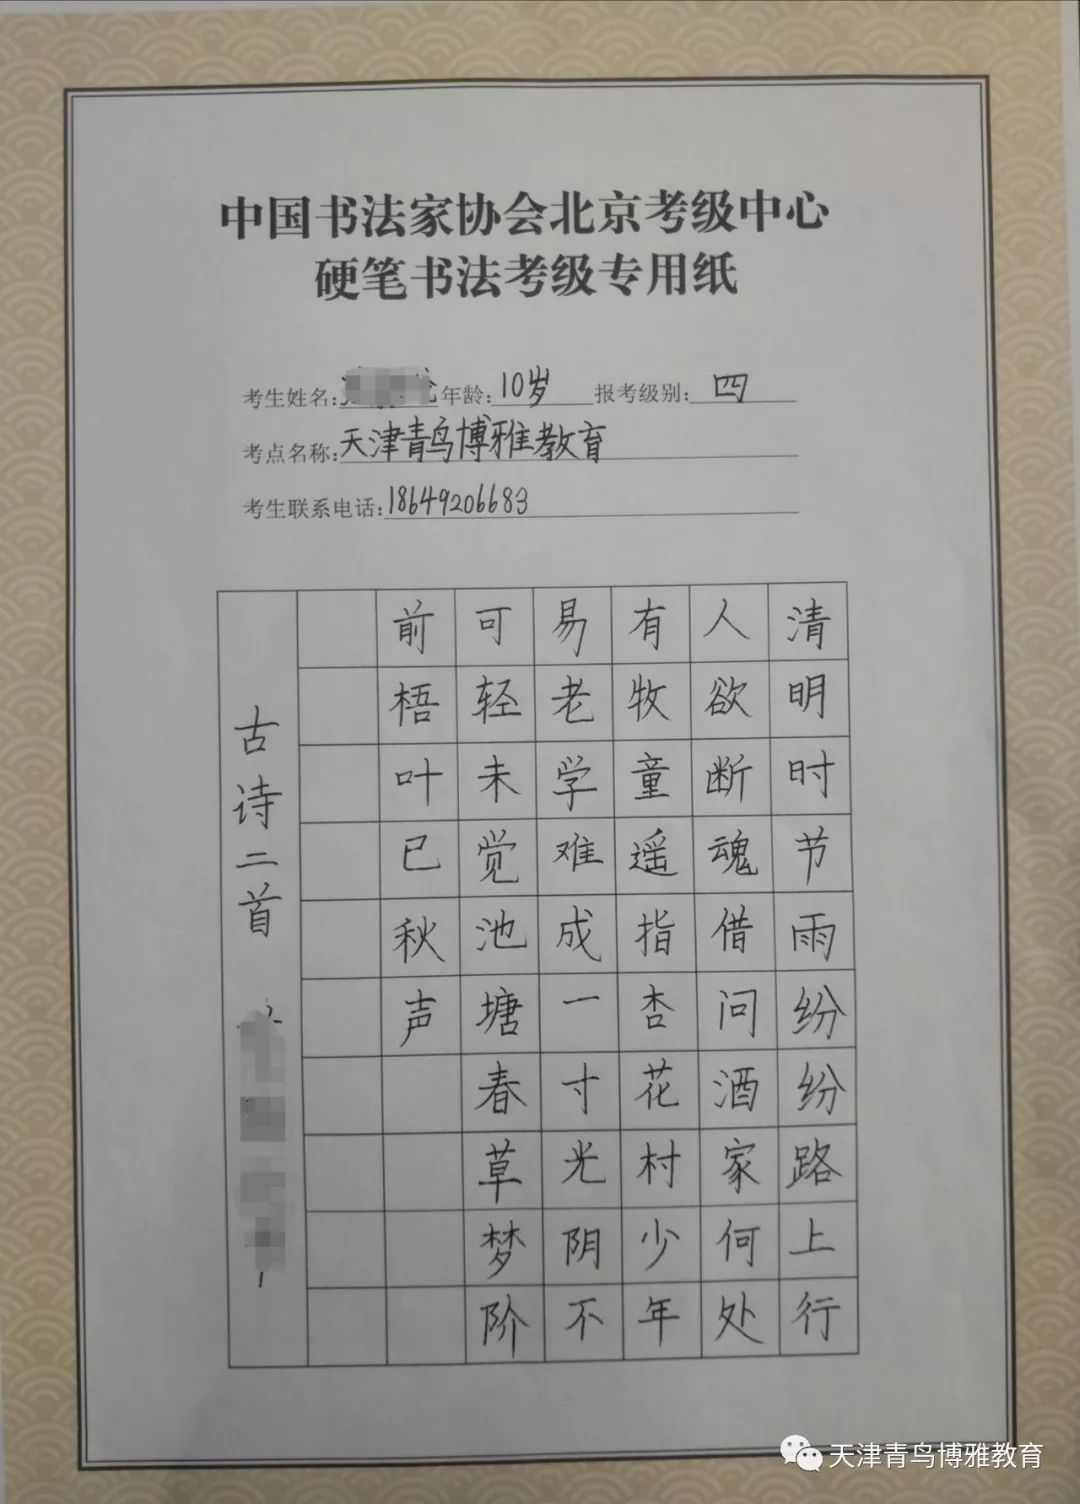 中国书法家协会北京考级中心
硬笔书法考级专用纸
考生姓名: 年龄:10岁 报考级别:四
考点名称:天津青鸟博雅教育
考生联系电话:18649206683
清明时节雨纷纷路上行
人欲断魂借问酒家何处
有牧童遥指杏花村少年
易老学难成一寸光阴不
可轻未觉池塘春草梦阶
前梧叶已秋声
古诗二首
天津青鸟博雅教育